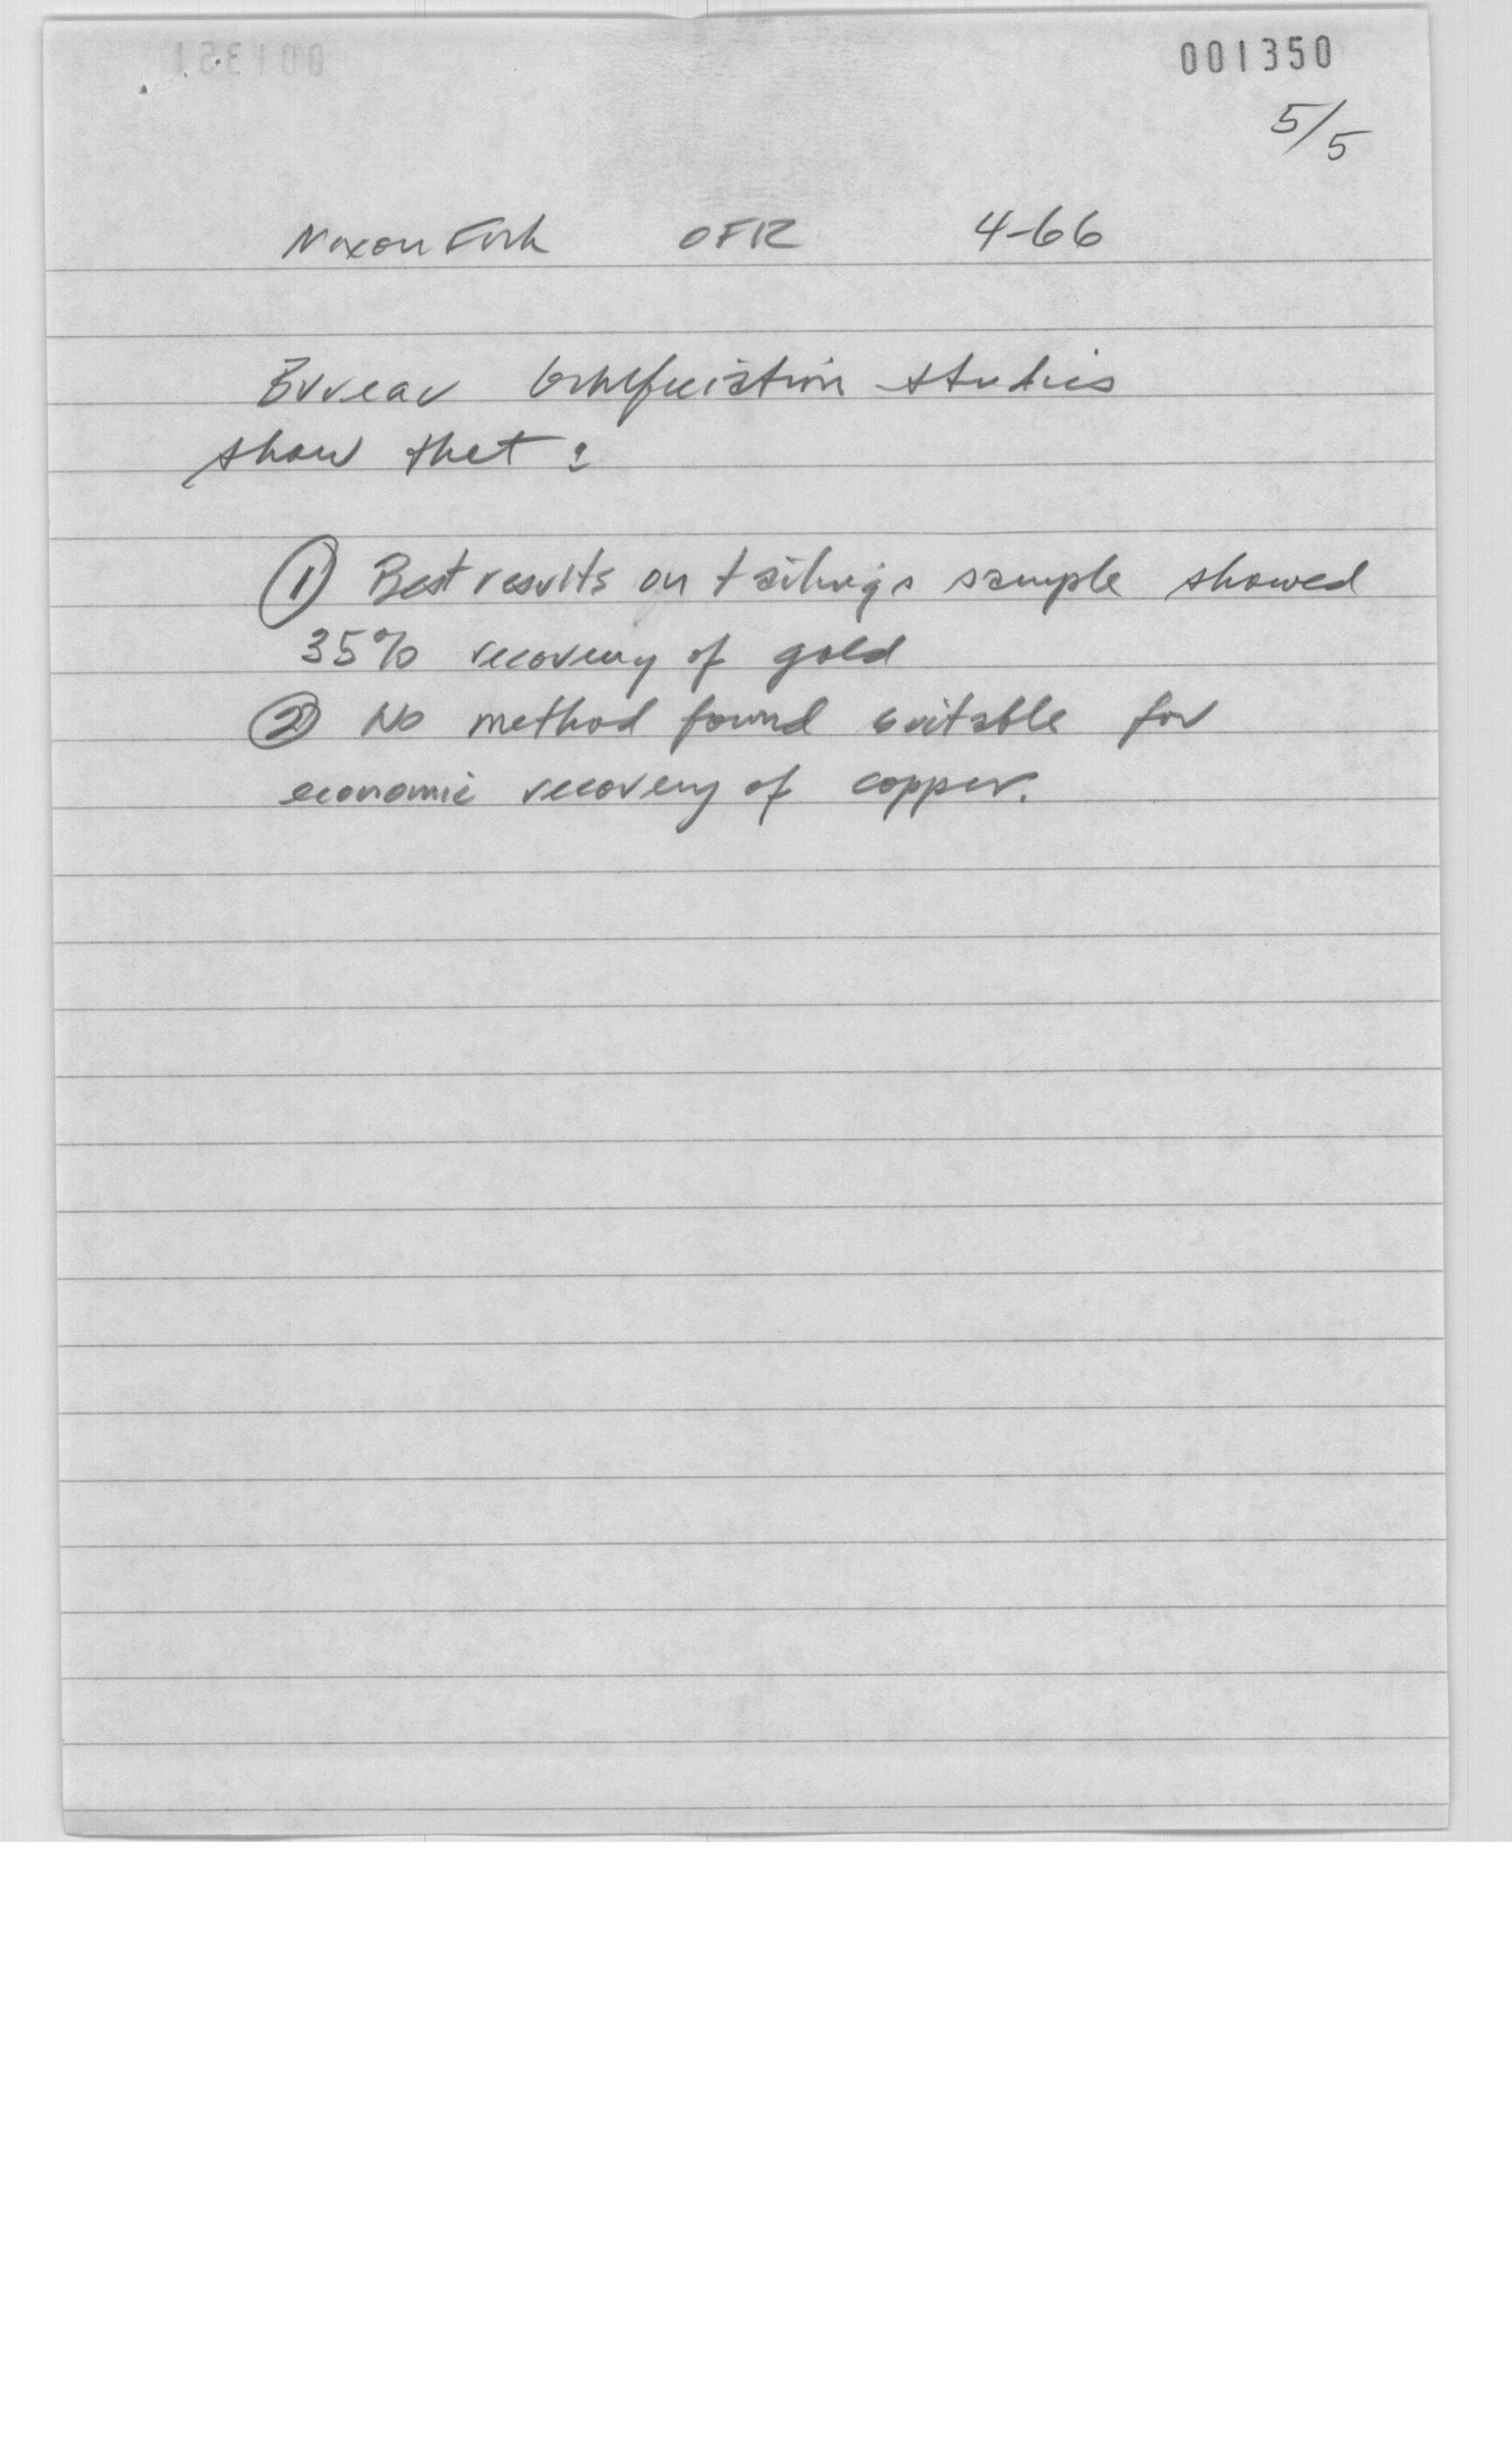 001350
5/5
Nixon Fork OFR 4-66
Bureau beneficiation studies
show that:
① Best results on tailings sample showed
35% recovery of gold
② No method found suitable for
economic recovery of copper.